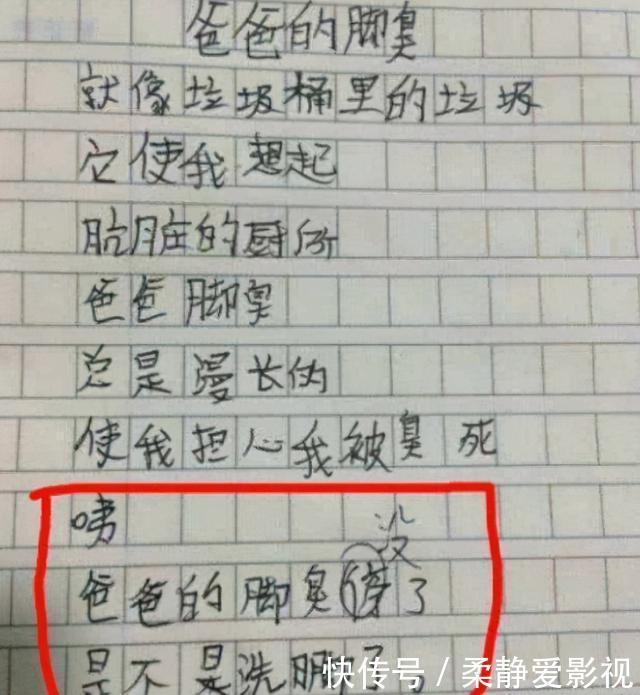 爸爸的脚臭
就像垃圾桶里的垃圾
它使我想起
肮脏的厨所
爸爸脚臭
总是漫长的
使我担心我被臭死
咦
没
爸爸的脚臭停了
是不是洗脚了
快传号 / 柔静爱影视